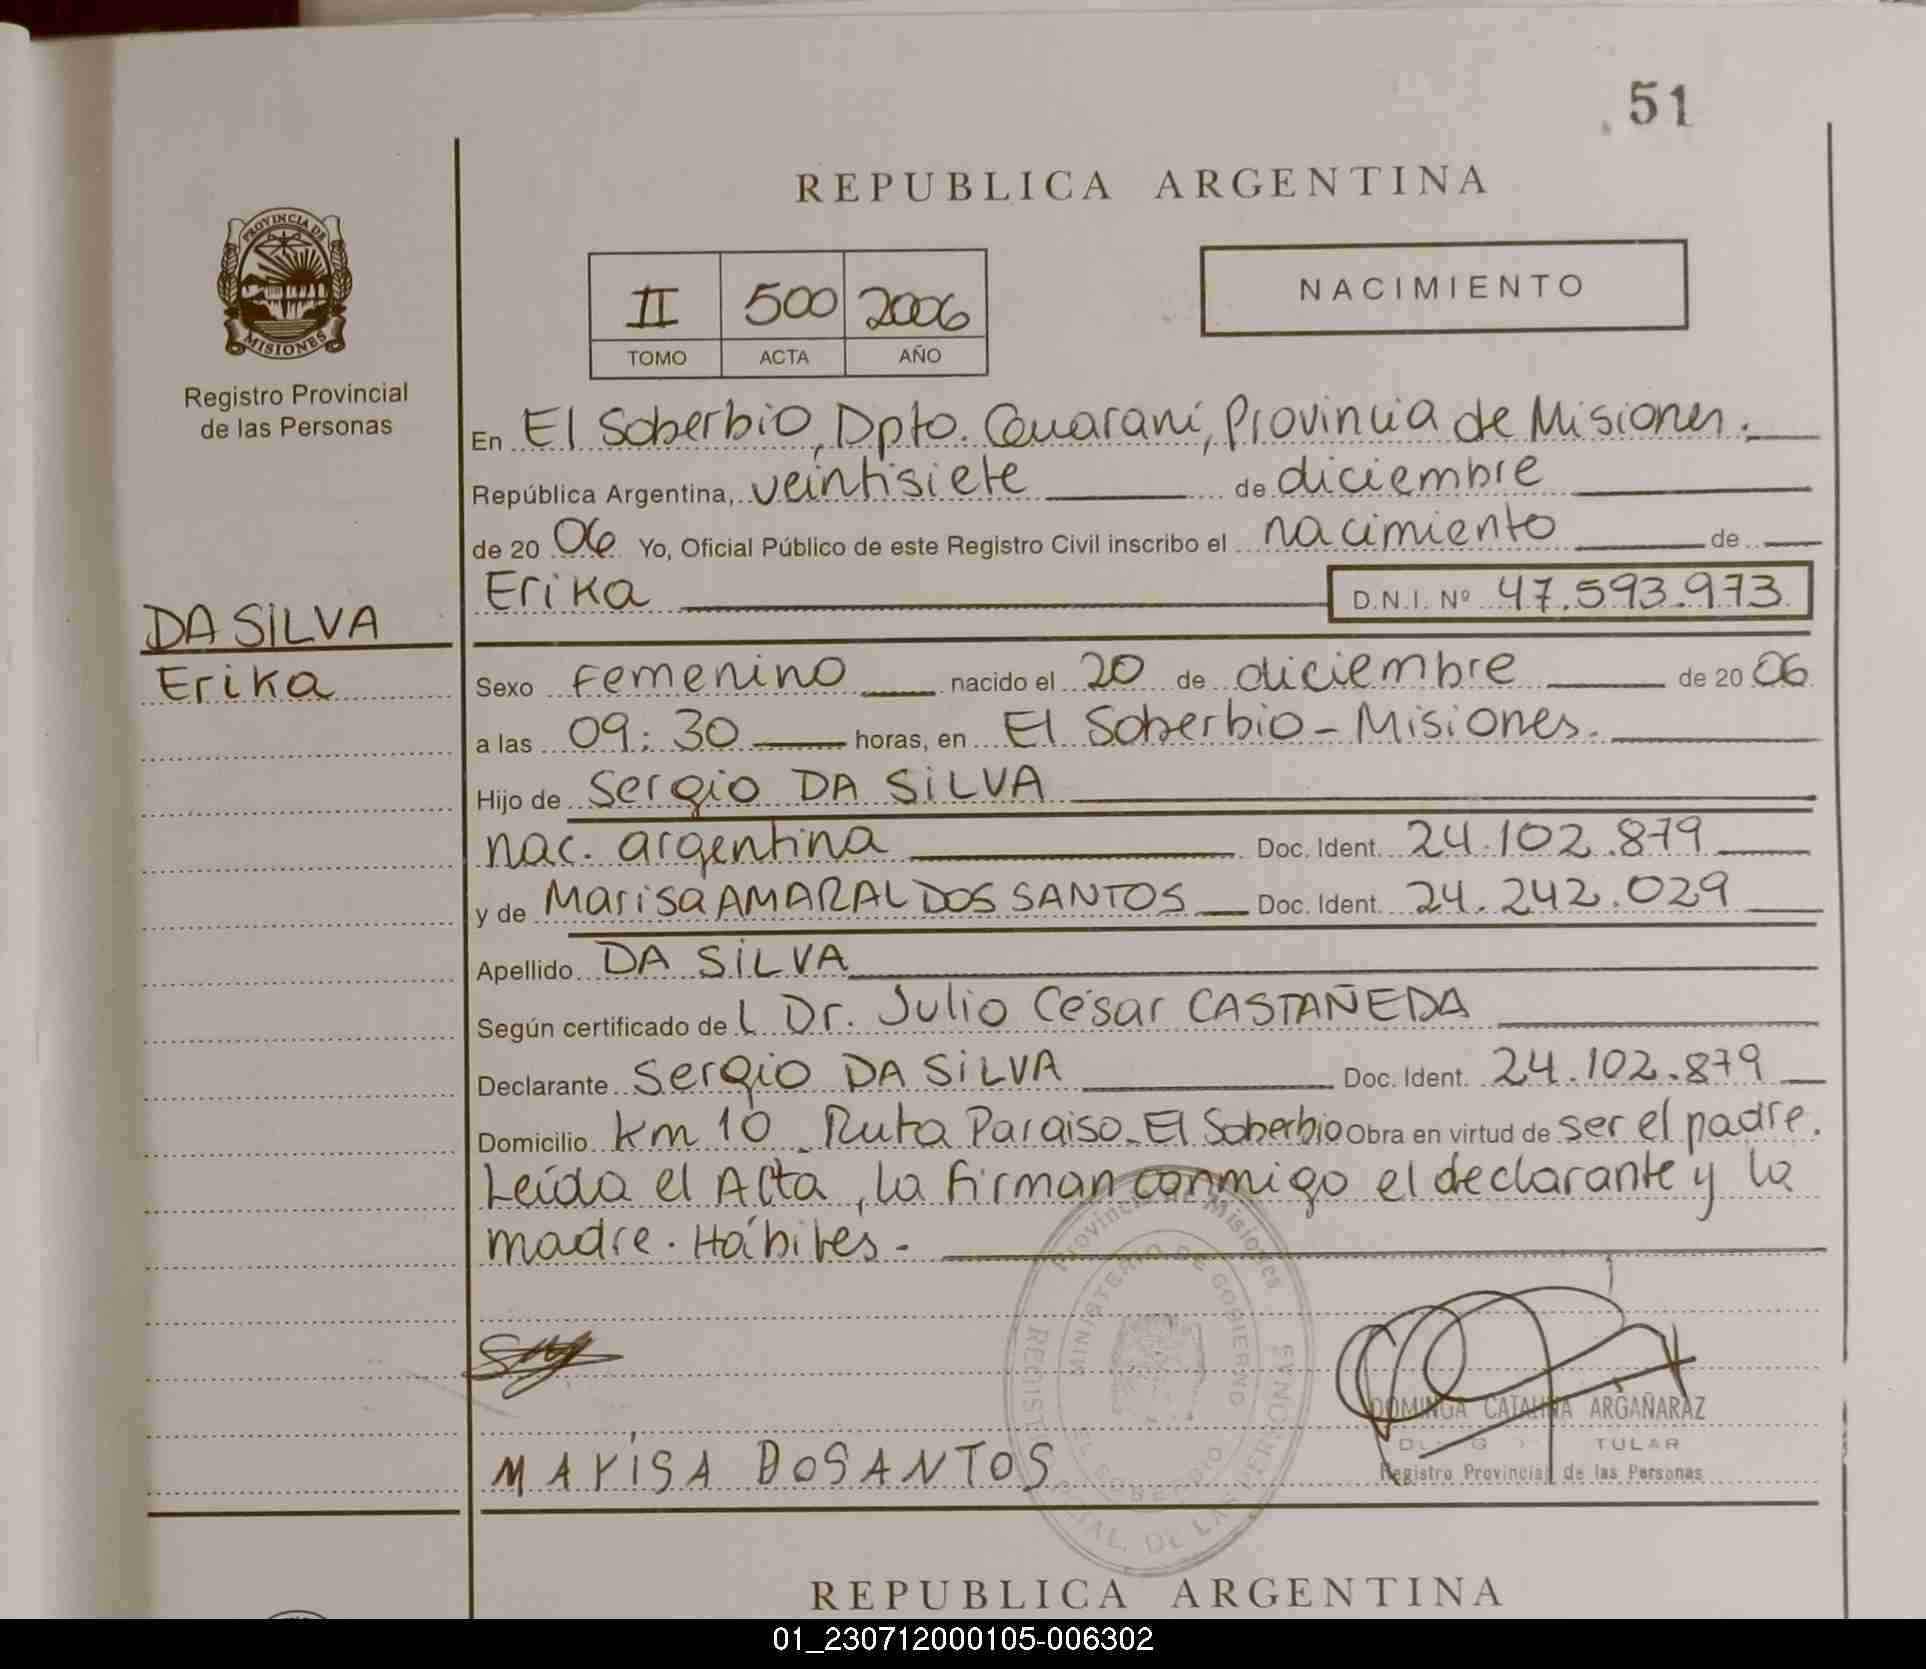 51
REPUBLICA ARGENTINA
PROVINCIA DE
MISIONES
Registro Provincial
de las Personas
II 500 2006
TOMO ACTA AÑO
NACIMIENTO
En El Soberbio, Dpto. Guaraní, Provincia de Misiones.
República Argentina, veintisiete de diciembre
de 20 06 Yo, Oficial Público de este Registro Civil inscribo el nacimiento de
Erika D.N.I. Nº 47.593.973
DA SILVA
Erika
Sexo Femenino nacido el 20 de diciembre de 20 06
a las 09:30 horas, en El Soberbio - Misiones.
Hijo de Sergio DA SILVA
nac. argentina Doc. Ident. 24.102.879
y de Marisa AMARAL DOS SANTOS Doc. Ident. 24.242.029
Apellido DA SILVA
Según certificado de l Dr. Julio César CASTAÑEDA
Declarante Sergio DA SILVA Doc. Ident. 24.102.879
Domicilio Km 10 Ruta Paraiso. El Soberbio Obra en virtud de ser el padre.
Leída el Acta, la firman conmigo el declarante y la
madre. Hábiles.-
Provincia Misiones
MINISTERIO DE GOBIERNO
EL SOBERBIO
DE LAS PERSONAS
DOMINGA CATALINA ARGAÑARAZ
Registro Provincial de las Personas
MARISA DOSANTOS
REPUBLICA ARGENTINA
01_230712000105-006302